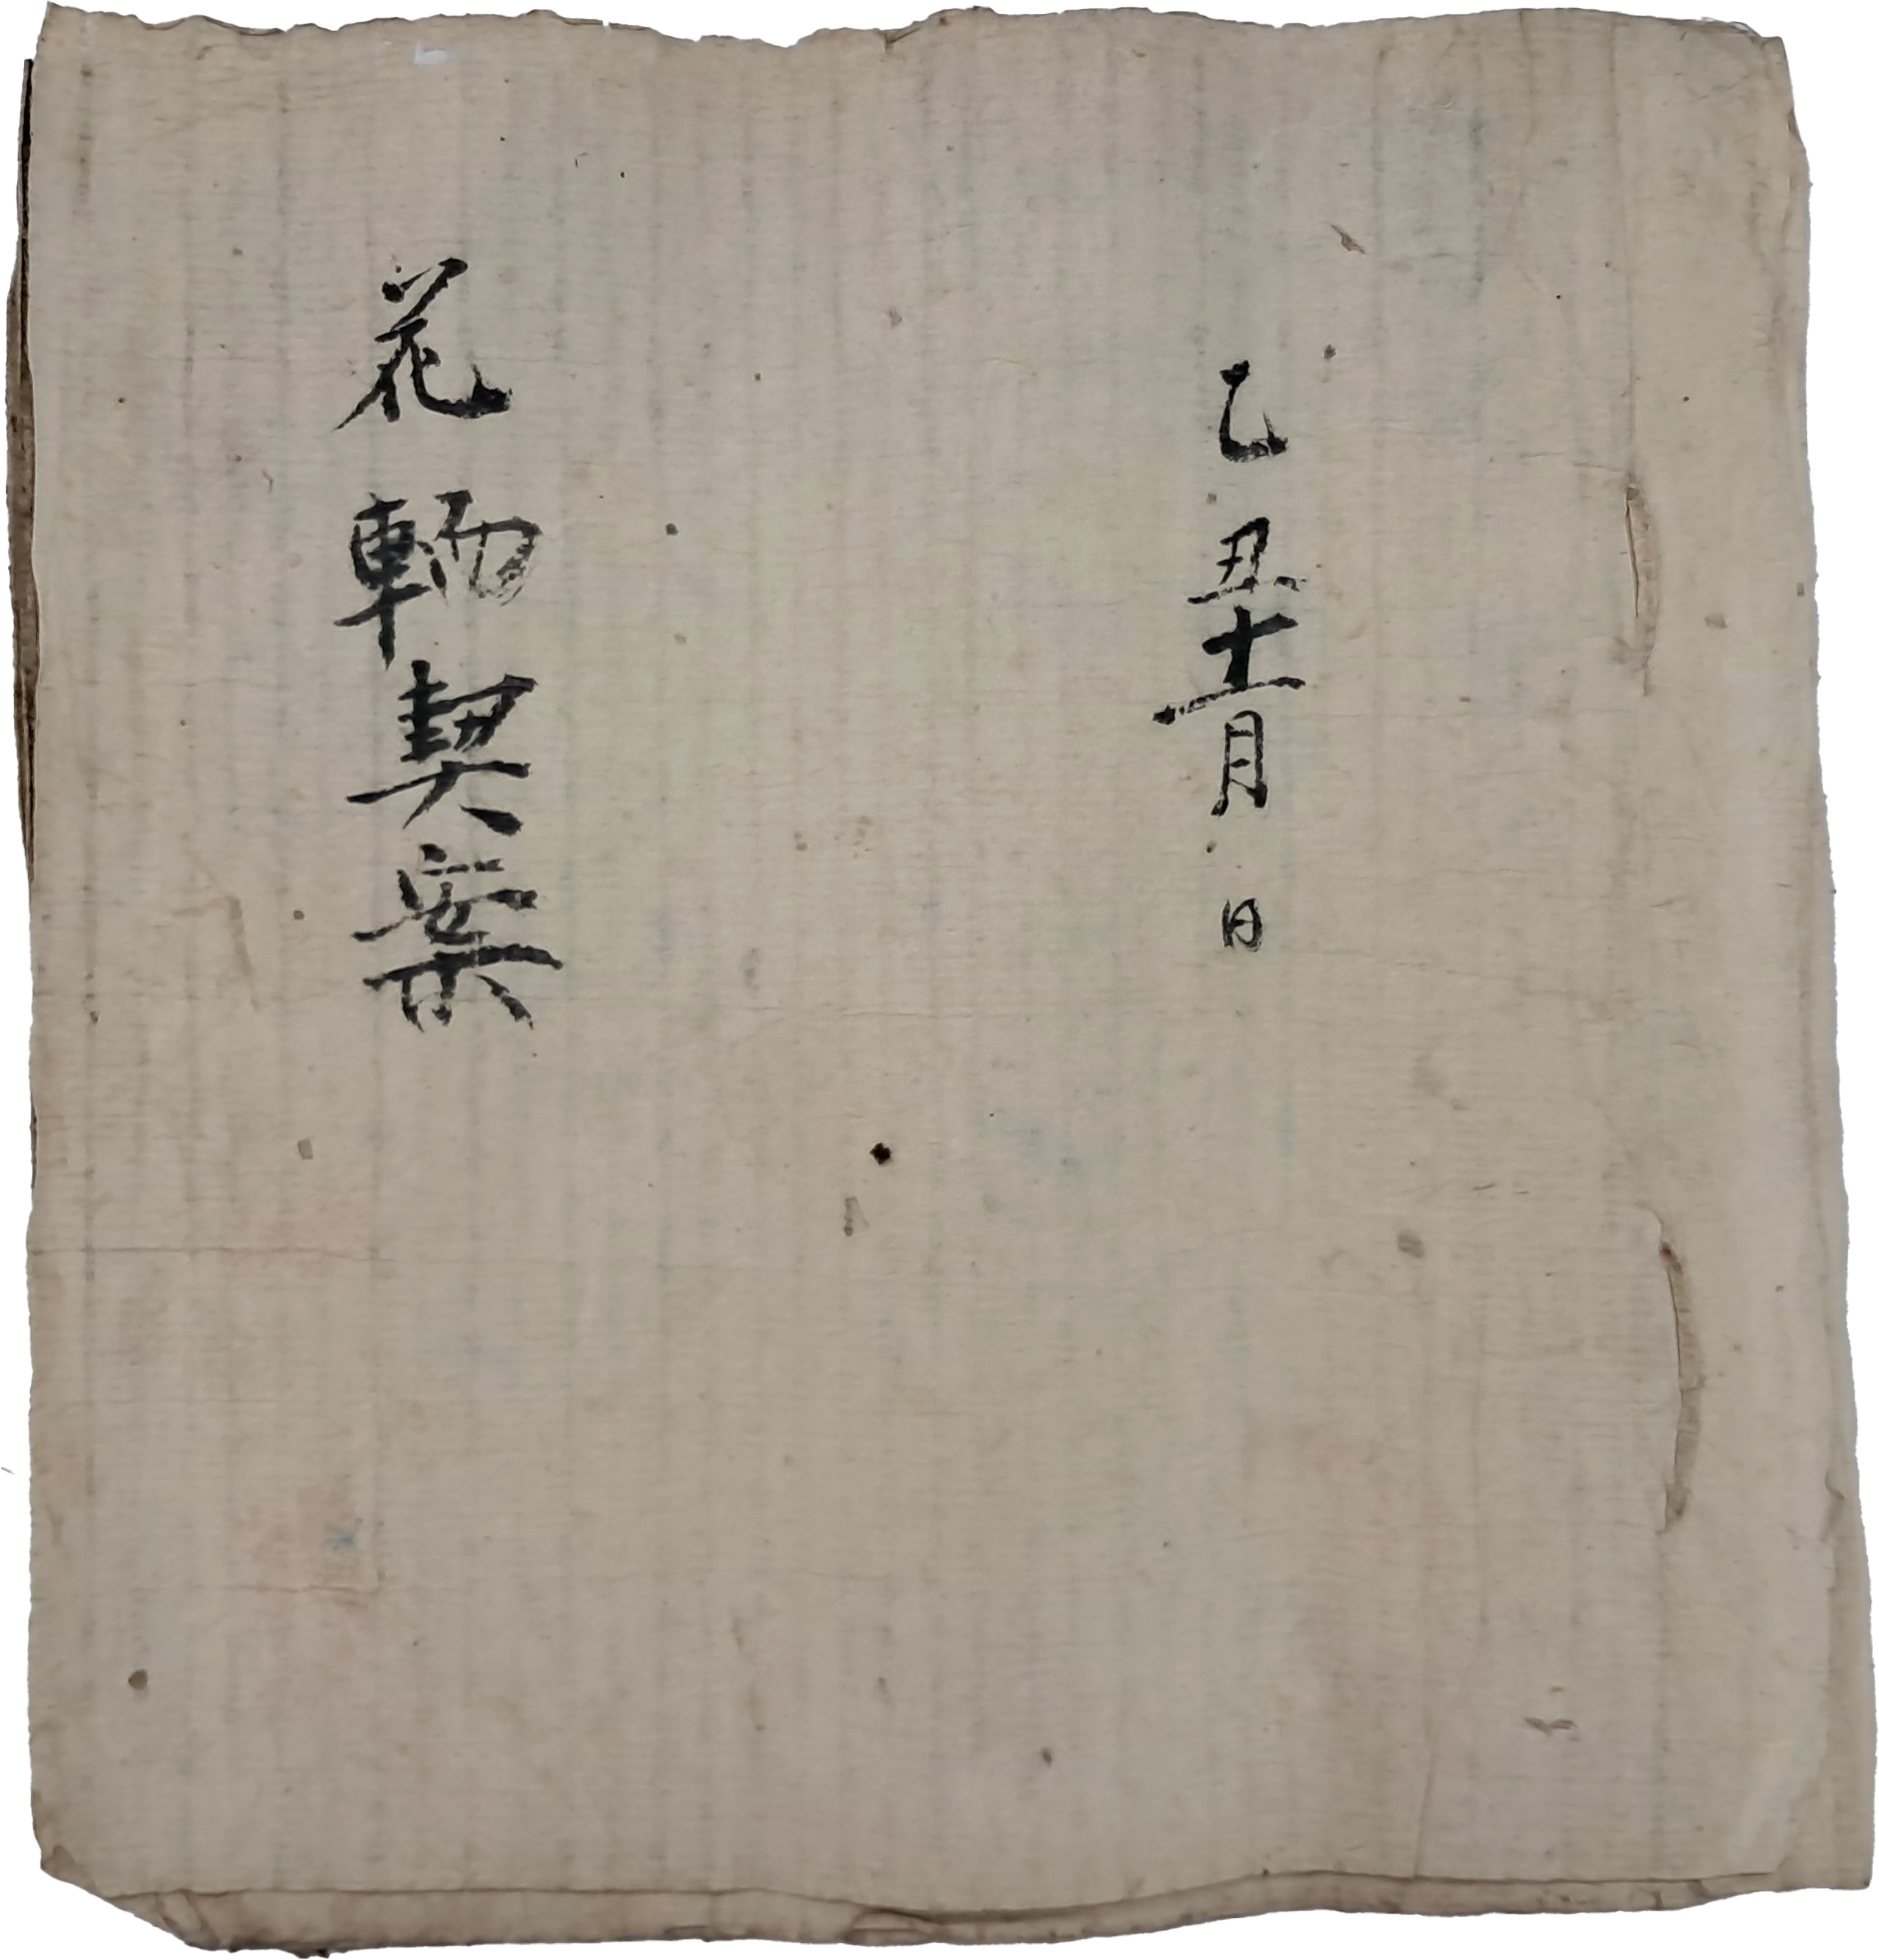 乙丑十一月 日
花輀契案